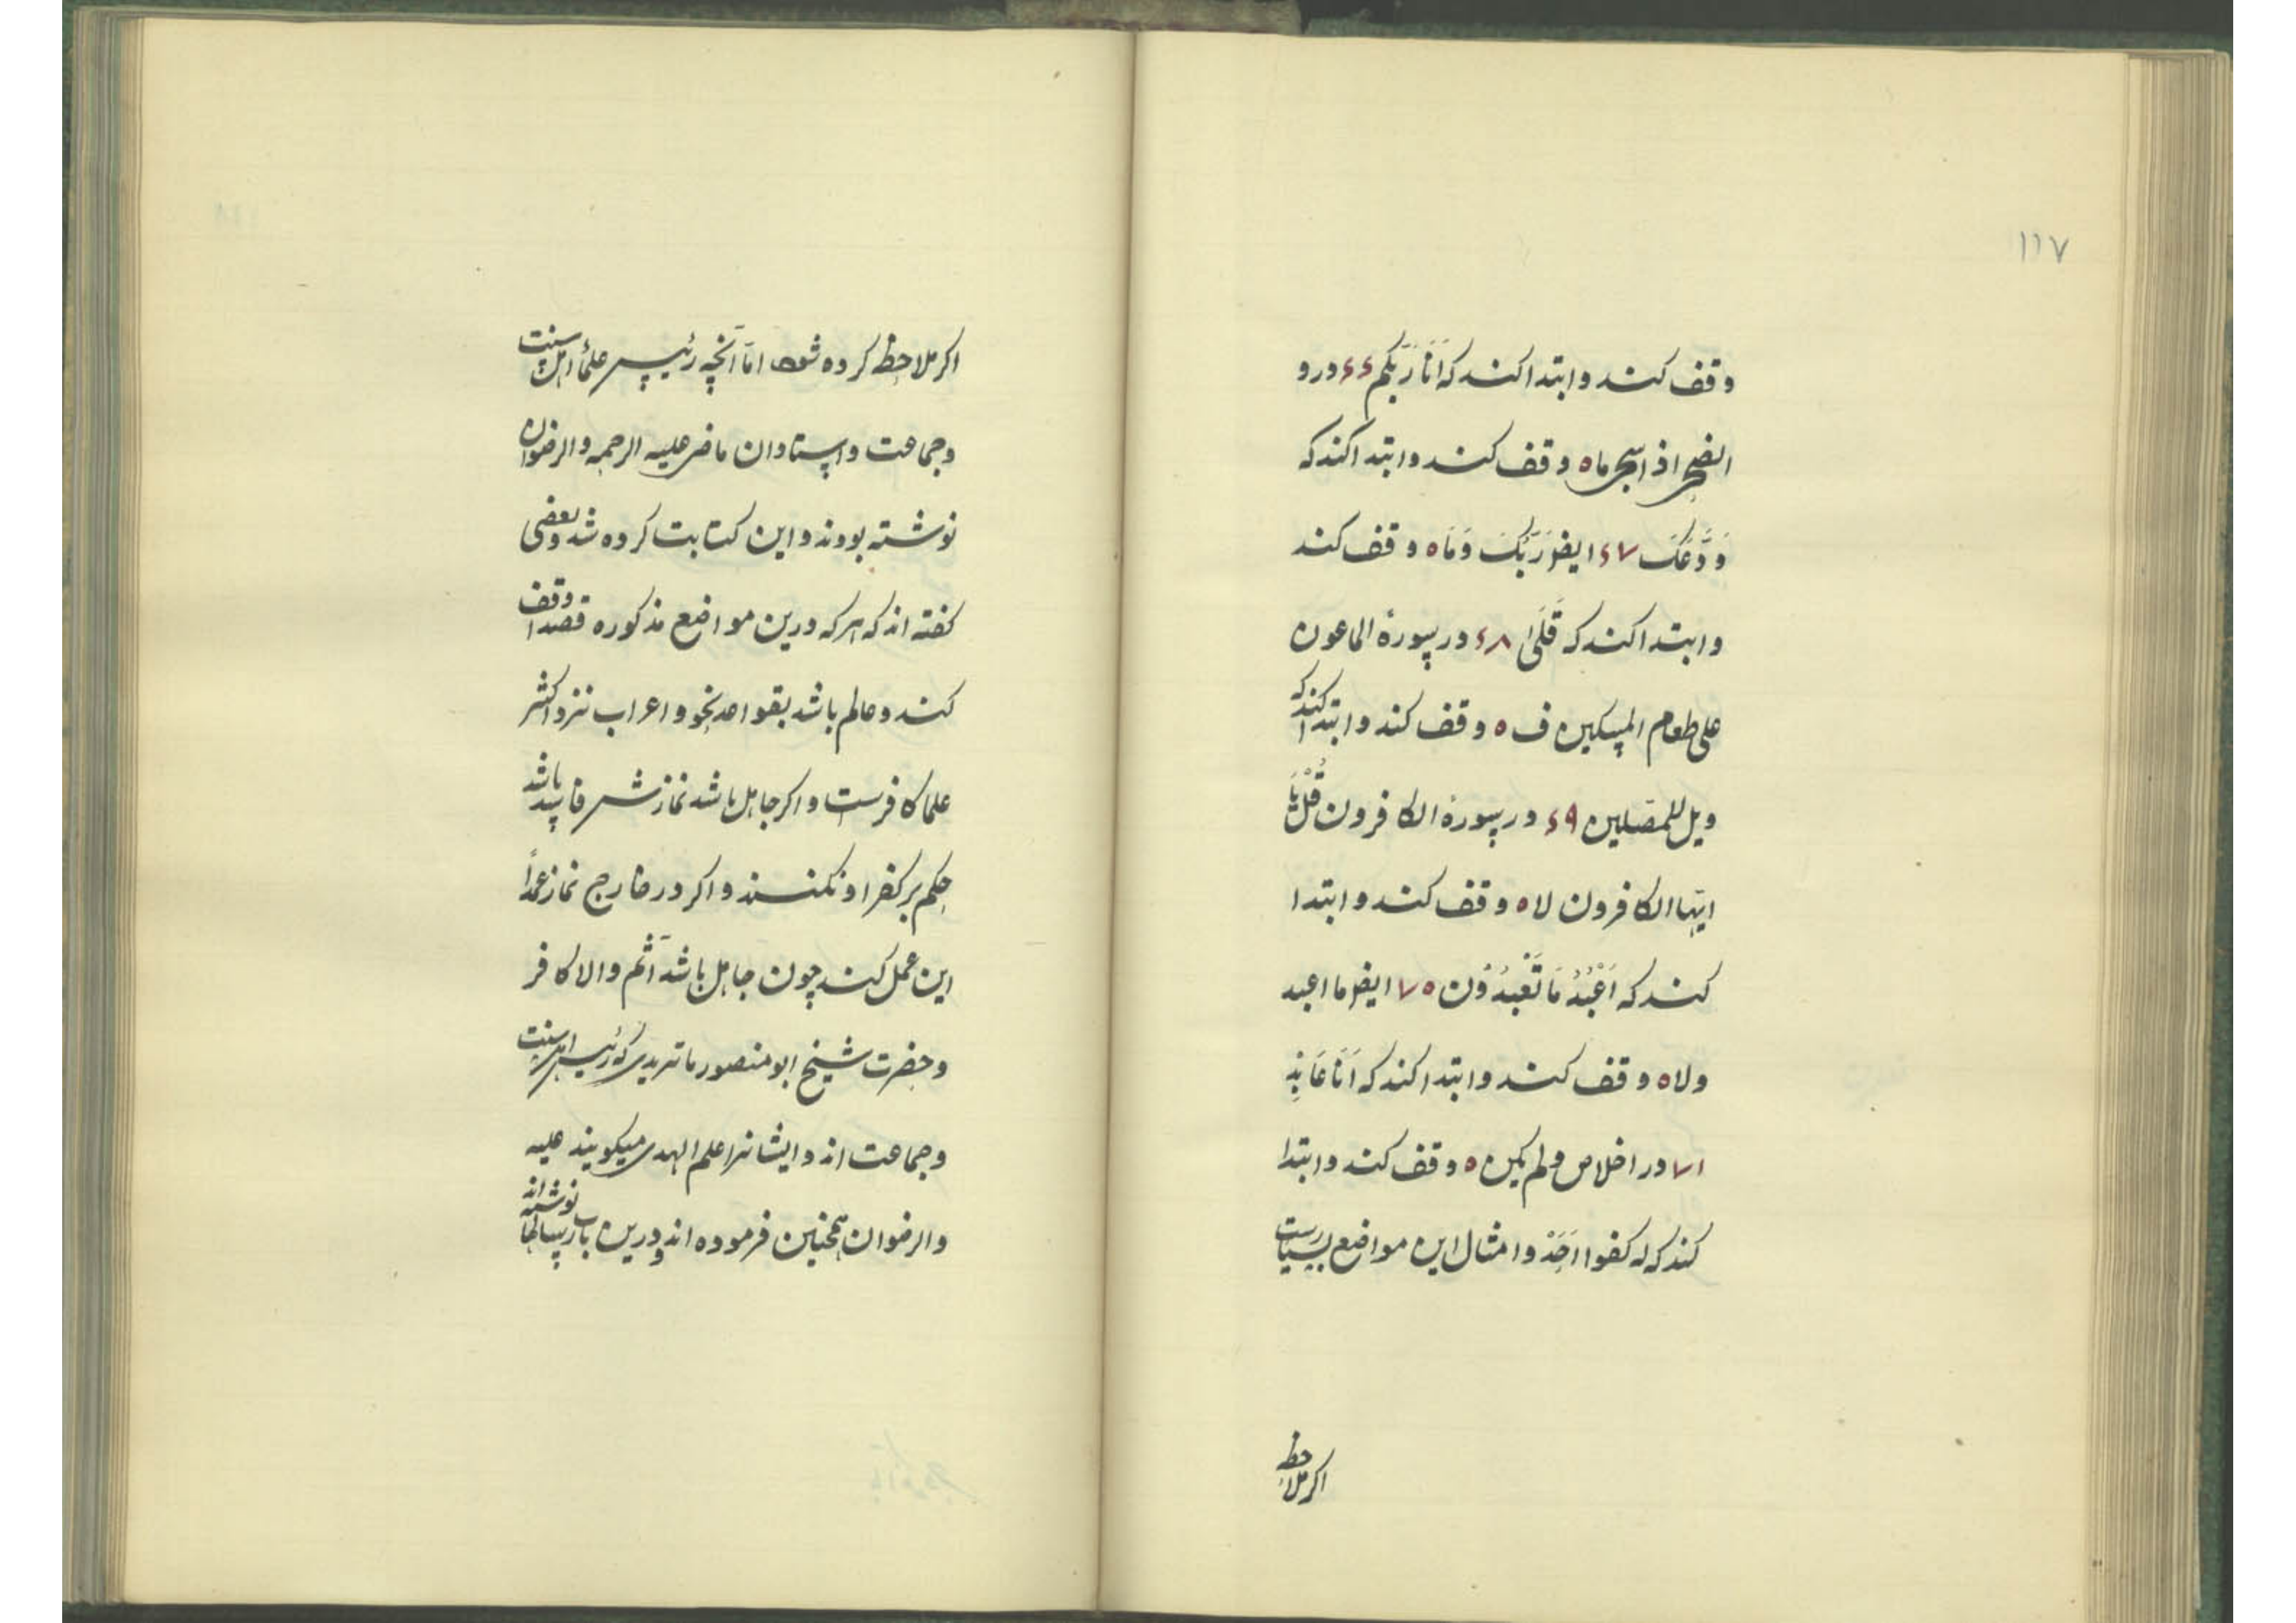 ١١٧
وقف کند وابتدا کند که اَنَا رَبُّکم ۶۶ درو
الضحی اذا سجی ما ه وقف کند وابتدا کند که
وَدَّعَکَ ۶۷ ایضا رَبُّکَ وَمَا ه وقف کند
وابتدا کند که قَلَیٰ ۶۸ در سورۀ الماعون
علی طعام المسکین ف ه وقف کند وابتدا کند که
ویل للمصلین ۶۹ در سورۀ الکافرون قُلْ یَا
ایها الکافرون لا ه وقف کند وابتدا
کند که اَعْبُدُ مَا تَعْبُدُوْن ۷۰ ایضا ما اعبد
ولا ه وقف کند وابتدا کند که اَنَا عَابِدٌ
۷۱ در اخلاص ولم یکن ه وقف کند وابتدا
کند که له کفوا اَحَدٌ وامثال این مواضع بسیارست
اکر ملاحظ
اکر ملاحظ کرده شود امّا آنچه رئیس علمأ اهل سنت
وجماعت واستادان ماضی علیه الرحمه والرضوان
نوشته بودند و این کتابت کرده شد وبعضی
کفته اند که هر که درین مواضع مذکوره قصدا وقف
کند وعالم باشد بقواعد نحو واعراب نزد اکثر
علما کافرست واکر جاهل باشد نمازش فاسد باشد
حکم بر کفر او نکنند واکر در خارج نماز عمداً
این عمل کند چون جاهل باشد آثم والا کافر
وحضرت شیخ ابو منصور ماتریدی که رئیس اهل سنت
وجماعت اند وایشانرا علم الهدی میکویند علیه
والرضوان همچنین فرموده اند ودرین باب رسالها نوشته اند